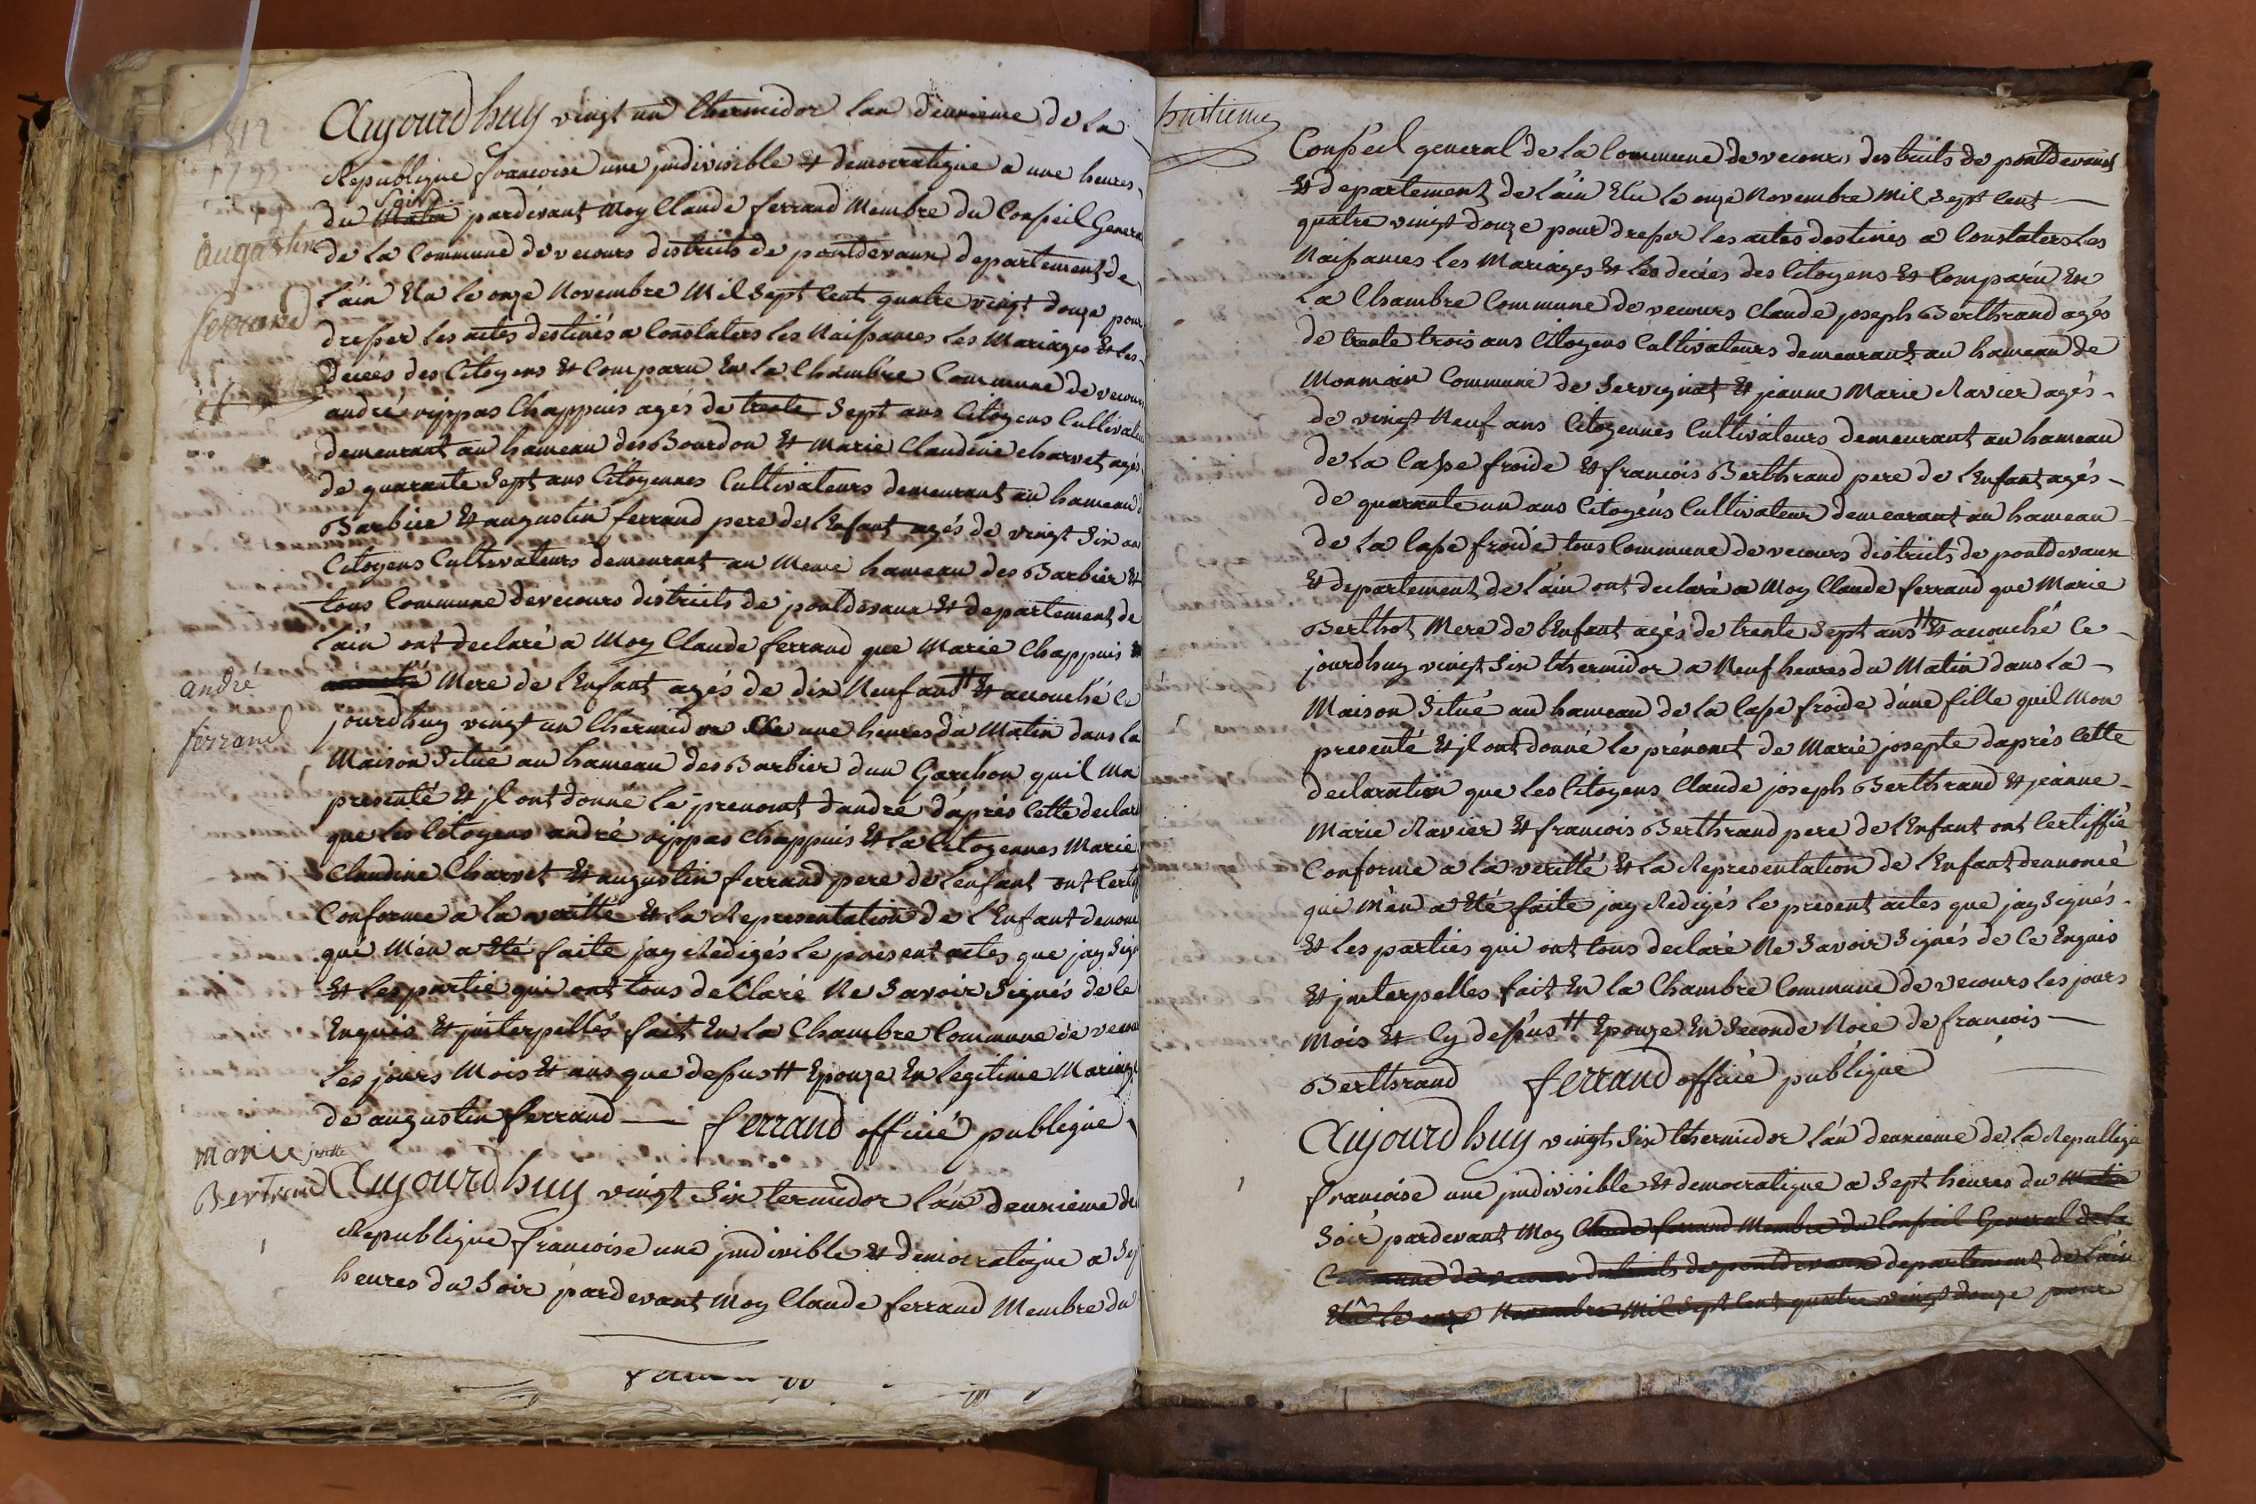 Augustin
ferrand
andré
ferrand
Marie josette
Bertrand
Aujourdhuy vingt un thermidor lan deuxieme de la
Republique francoise une jndivisible et democratique a une heures
du Matin Soir pardevant Moy Claude ferrand Membre du Conseil General
de la Commune de vecours districts de pontdevaux departement de
lain Elu le onze Novembre Mil Sept Cent quatre vingt douze pour
dresser les actes destinés a Constaters les Naissances les Mariages et les
decées des Citoyens et Comparu En la Chambre Commune de vecours
andré vippas Chappuis agés de trente Sept ans Citoyens Cultivateurs
demeurant au hameau des Bourdon et Marie Claudine charvet agés
de quarante Sept ans Citoyennes Cultivateurs demeurant au hameau d
Barbier et augustin ferrand pere de lEnfant agés de vingt Six ans
Citoyens Cultivateurs demeurant au Meme hameau des Barbier et
tous Commune de vecours districts de pontdevaux et departement de
lain ont declaré a Moy Claude ferrand que Marie Chappuis
Mere de lEnfant agés de dix Neuf ans # Et accouché Ce
jourdhuy vingt un thermidor une heures du Matin dans la
Maison Situé au hameau des Barbier dun Garchon quil Ma
presenté et jl ont donné le prenomt dandré daprés Cette declara
que les Citoyens andré vippas Chappuis et la Citoyennes Marie
Claudine Charvet et augustin ferrand pere de lenfant ont Certif
Conforme a la veritté et la Representation de lEnfant denonc
qui Mén a Eté faite jay Redigés le present actes que jay Sign
et les partie qui ont tous declaré Ne Savoir Signés de Ce
Enquis et jnterpellés fait En la Chambre Commune de vecours
les jours Mois et ans que dessus # Epouze En legitime Mariage
de augustin ferrand — ferrand officié publique
Aujourdhuy vingt Six termidor lán deuxieme de
Republique francoise une jndivible et democratique a Sep
heures du Soir pardevant Moy Claude ferrand Membre du
huitieme
Conseil general de la Commune de vecours destricts de pontdevaux
et departement de lain Elu le onze Novembre Mil Sept Cent
quatre vingt douze pour dresser les actes destinés a Constaters les
Naissances les Mariages et les decées des Citoyens et Comparu En
la Chambre Commune de vecours Claude joseph Berthrand agés
de trente trois ans Citoyens Cultivateurs demeurant au hameau de
Monmain Commune de Servignat et jeanne Marie Ravier agés
de vingt Neuf ans Citoyennes Cultivateurs demeurant au hameau
de la Casse froide et francois Berthrand pere de lEnfant agés
de quarante un ans Citoyens Cultivateur demeurant au hameau
de la Casse froide tous Commune de vecours districts de pontdevaux
et departement de lain ont declaré a Moy Claude ferrand que Marie
Berthot Mere de lEnfant agés de trente Sept ans # Et accouché Ce
jourdhuy vingt Six thermidor a Neuf heures du Matin dans la
Maison Situé au hameau de la Casse froide dune fille quil Mon
presenté et jl ont donné le prénomt de Marie josepte daprés Cette
declaration que les Citoyens Claude joseph Berthrand et jeanne
Marie Ravier et francois Berthrand pere de lEnfant ont Certiffié
Conforme a la veritté et la Representation de lEnfant dennoncé
qui Mén a Eté faite jay Redigés le present actes que jay Signés
et les parties qui ont tous declaré Ne Savoir Signés de Ce Enquis
et jnterpelles fait En la Chambre Commune de vecours les jours
Mois et Cy dessus # Epouze En Seconde Noce de francois
Berthrand ferrand officié publique
Aujourdhuy vingt Six thermidor lán deuxieme de la Republique
francoise une jndivisible et democratique a Sept heures du Matin
Soir pardevant Moy Claude ferrand Membre du Conseil General de la
Commune de vecours districts de pontdevaux departement de lain
Elû le onze Novembre Mil Sept Cent quatre vingt douze pour